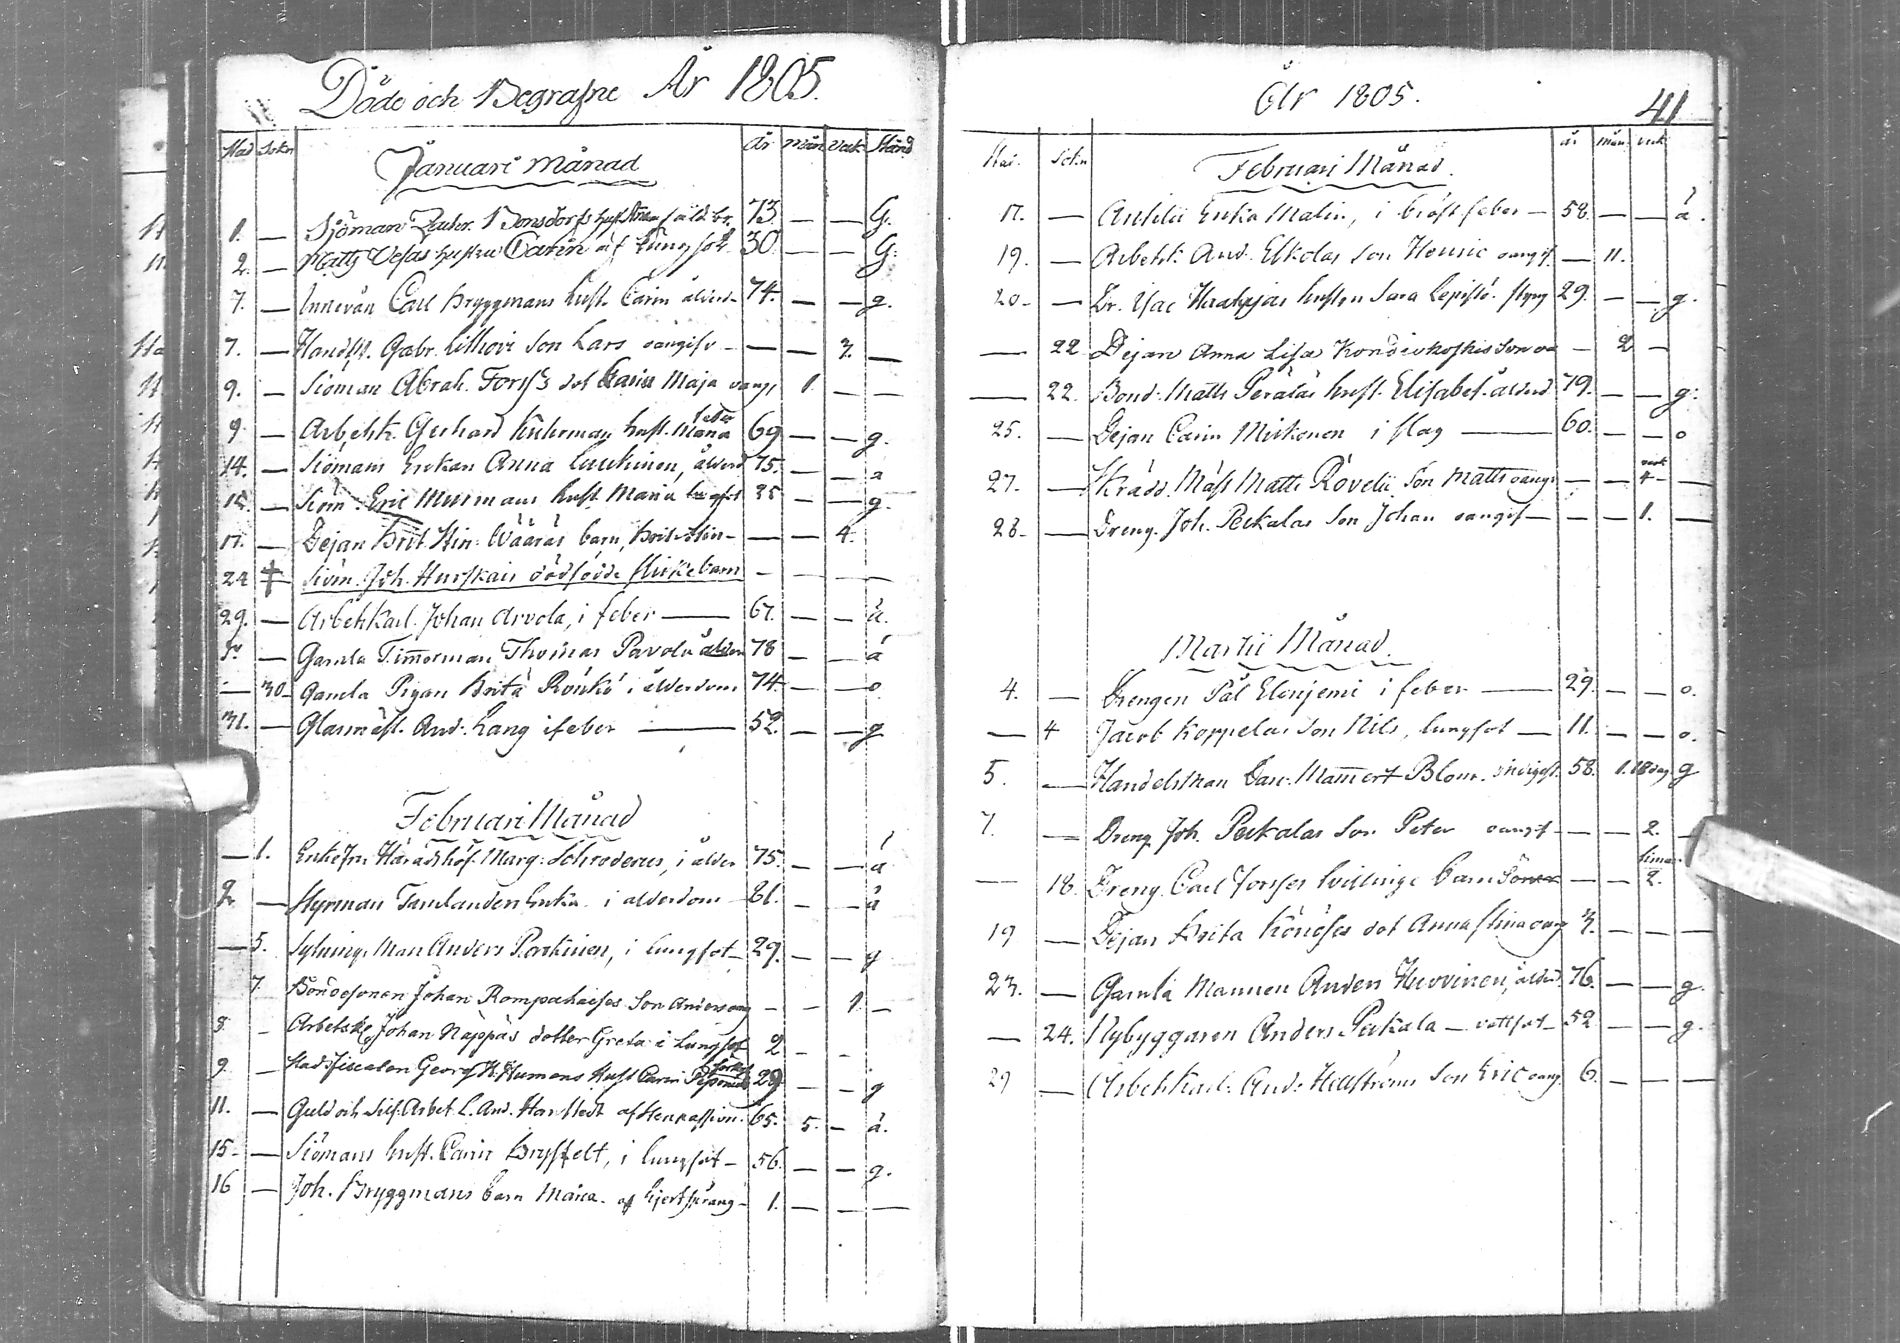 Döde och Begrafne År 1805.
Stad Sokn År mån. veck. Stånd
Januari månad
1. — Sjöman Zachr. Bonsdorfs hust. af åld.br. 73 — — G.
2. — Matts Vesas hustru Carin af lungsot. 30 — — G.
7. — Carl Bryggmans hust. Carin ålderd. 74. — — g.
7. — Handl. Gabr. Lithovi Son Lars oangifv — — — 3. —
9. — Siöman Abrah. Forss's dot Maja oangi 1. — —
9 — Arbetsk. Gerhard hust. Maria 69 — — g.
14. — Siömans Enkan Anna ålderd 75. — a
15. — Siöm. Eric Murmans hust. Maria 25 — — g.
17. — Pejan Brit Stin: Wääräs barn, Brit Stin — — — 4.
24 † Siöm. Joh. Hurskais dödfödde flickebarn — — — —
29. — Arbetskarl. Johan Arvola, i feber — 67. — — ä.
— Gamla Timmerman Thomas Pavola 78 — — á
— 30 — Gamla Pigan Brita Rönkö i ålderdom 74. — — o
31. — Glasmäst. And. Lang i feber — 52. — — g
Februari Månad
— 1. Enkefru Häradshöf. Marg: Schroderus, i ålder 75. — — á
2. — Styrman Tamlanders Enka i ålderdom 81. — — á
— 5. Man Anders Parkinen, i lungsot 29. — — g
7. Bondesonen Johan Son Anders oang — — 1. —
8. — Arbetsk Johan Najppäs dotter Greta i Lungsot 2 — —
9. — Stadsfiscalen Georg Humons Hust Carin 29 — — g
11. — Guld och Silf. Arbet. L. And. Harstedt af 65. 5. — á.
15. — Siömans hust. Carin i lungsot — 56. — — g.
16 — Joh. Bryggmans barn Maria. af hjertsprång 1. — — —
År 1805.
41
Stad. Sokn år mån. veck
Februari Månad.
17. — Enka Malin, i bröstfeber — 58. — — á.
19. — Arbetsk. And. Elkolas Son Henric oangif. — 11.
20. — Dr. Isac hustru Sara Lepistö 29. — — g.
— 22 Pejan Anna Lisa Son oa — 2 —
— 22. Bond. Matts Peräläs hust. Elisabet ålderd 79. — — g.
25. — Pejan Carin Mirkonen i slag — 60. — — o
27. — Skrädd. Mäst Matts Rövelii Son Matts oangi — — veck 4 —
28. — Dreng. Joh. Peckalas Son Johan oangif — — — 1. —
Martii Månad.
4. — Drengen Pål i feber — 29. — — o.
— 4 Jacob Koppelas Son Nils, lungsot — 11. — — o.
5. — Handelsman Mammert Blom. 58. 1. 18 dag. g
7. — Dreng Joh. Peckalas Son Peter oangif — — — 2. —
— 18. Dreng. Carl Forsses tvillinge barn Söner — — timar 2.
19 — Pejan Brita dot Anna Stina oang — — —
23. — Gamla Mannen Anders Huovinen, ålderd. 76. — — g.
— 24. Nybyggaren Anders Peckala — vattsot — 52 — — g.
29 — Arbetskarl. And. Hellströms Son Eric oang. 6. — — —